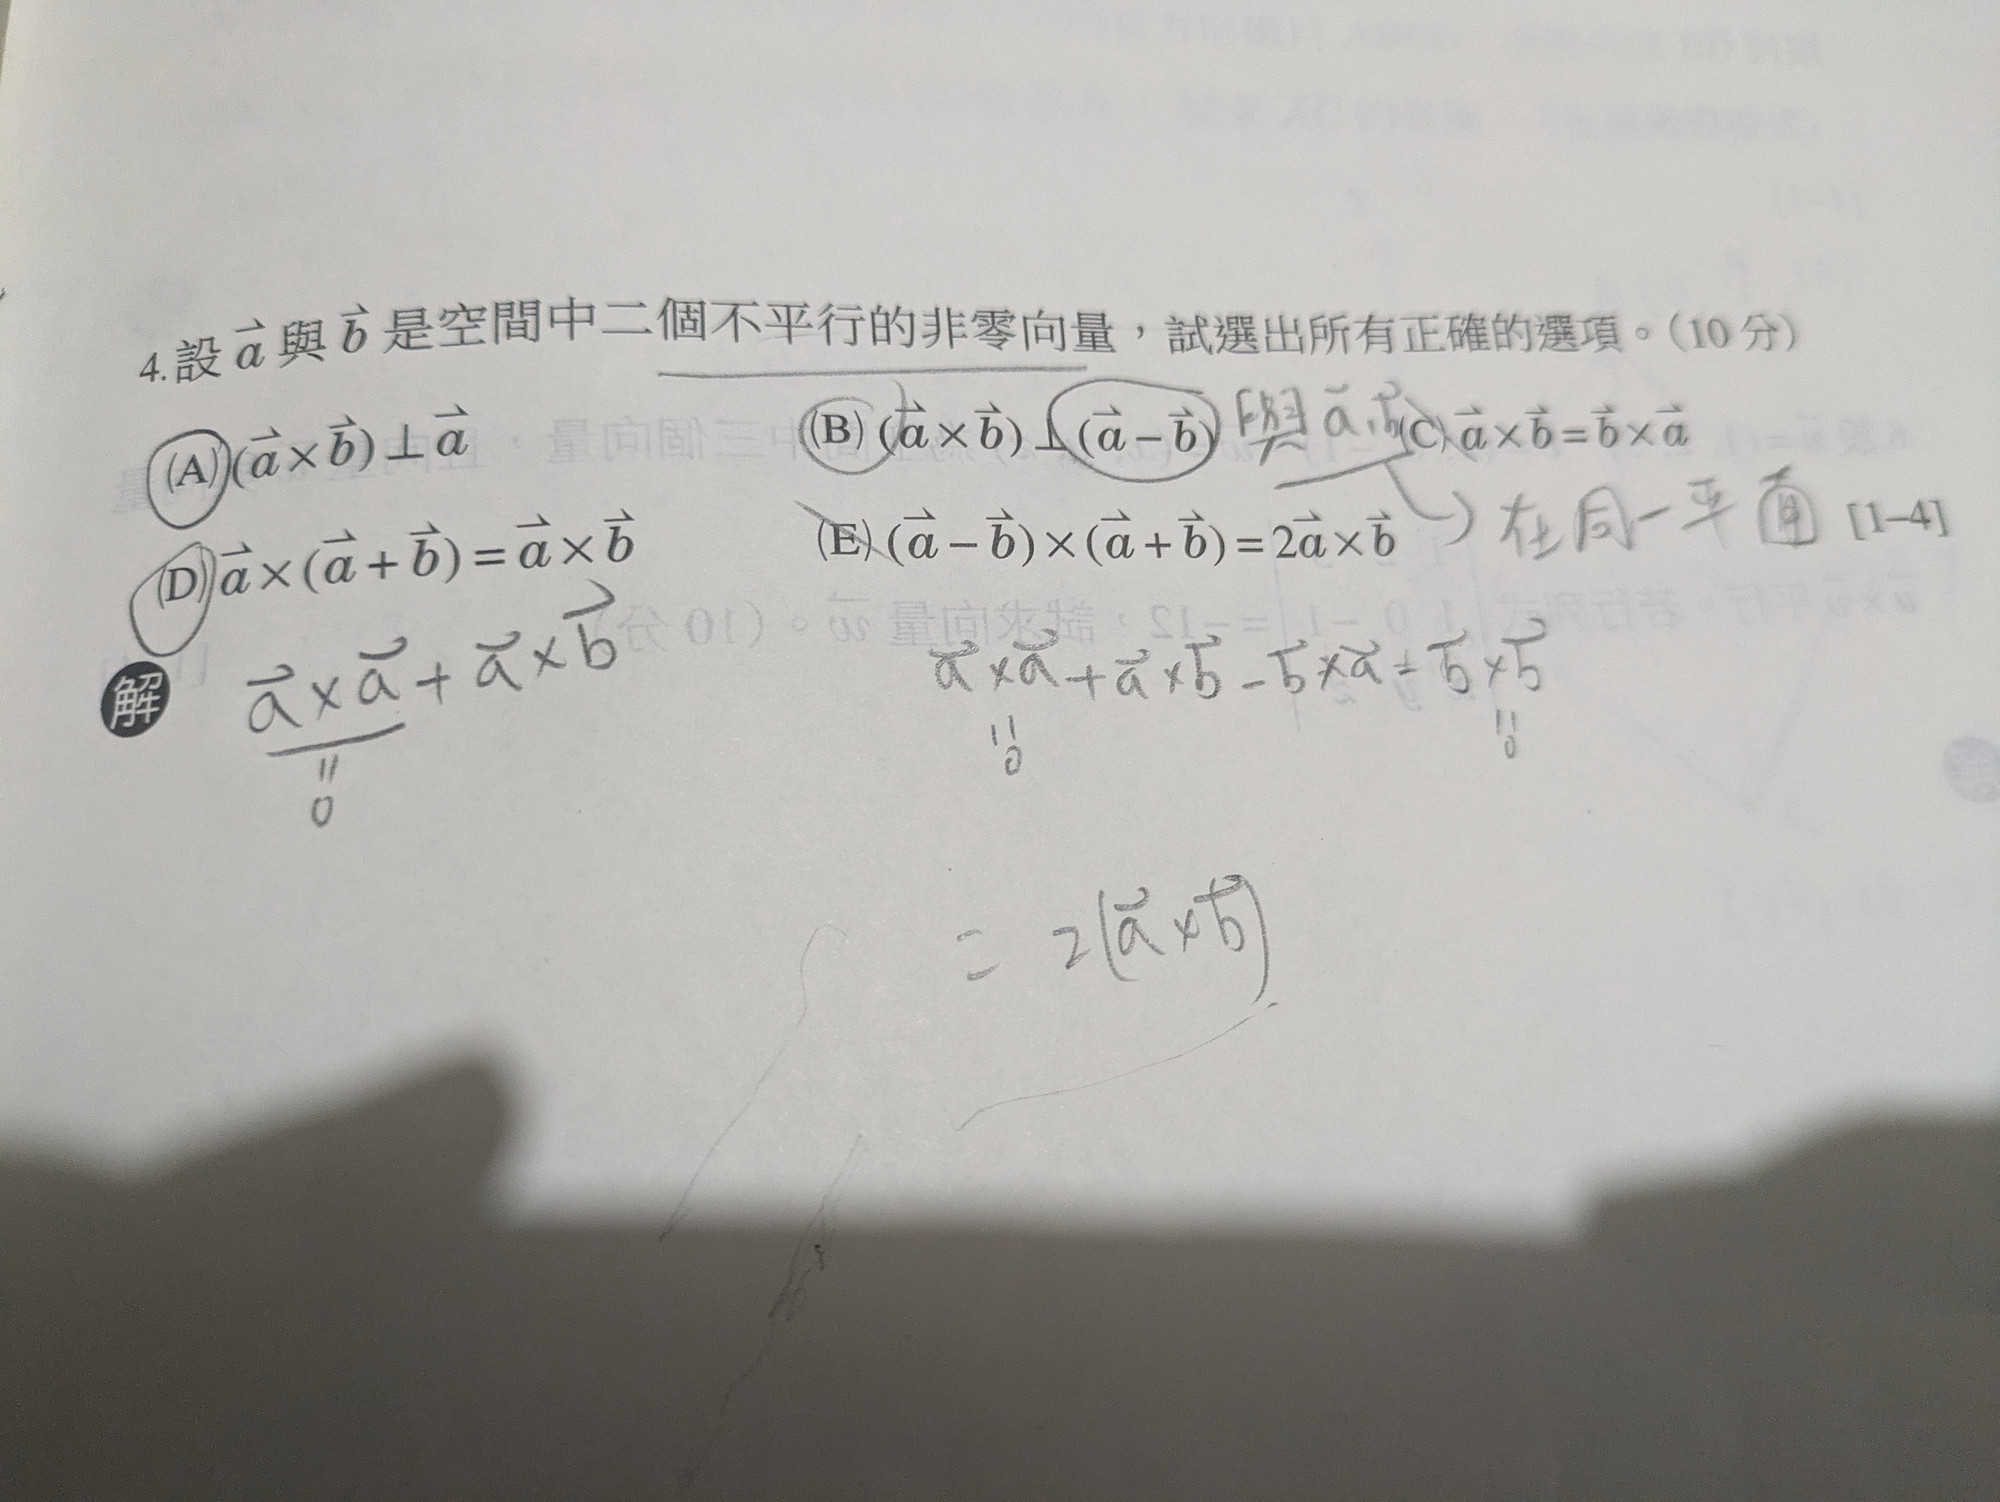 4.設 a⃗ 與 b⃗ 是空間中二個不平行的非零向量，試選出所有正確的選項。(10 分)
(A) (a⃗×b⃗)⊥a⃗ (B) (a⃗×b⃗)⊥(a⃗−b⃗) 與 a⃗,b⃗ (C) a⃗×b⃗=b⃗×a⃗
(D) a⃗×(a⃗+b⃗)=a⃗×b⃗ (E) (a⃗−b⃗)×(a⃗+b⃗)=2a⃗×b⃗ 在同一平面 [1–4]
解 a⃗×a⃗+a⃗×b⃗ a⃗×a⃗+a⃗×b⃗−b⃗×a⃗−b⃗×b⃗
=0 =0 =0
= 2(a⃗×b⃗)